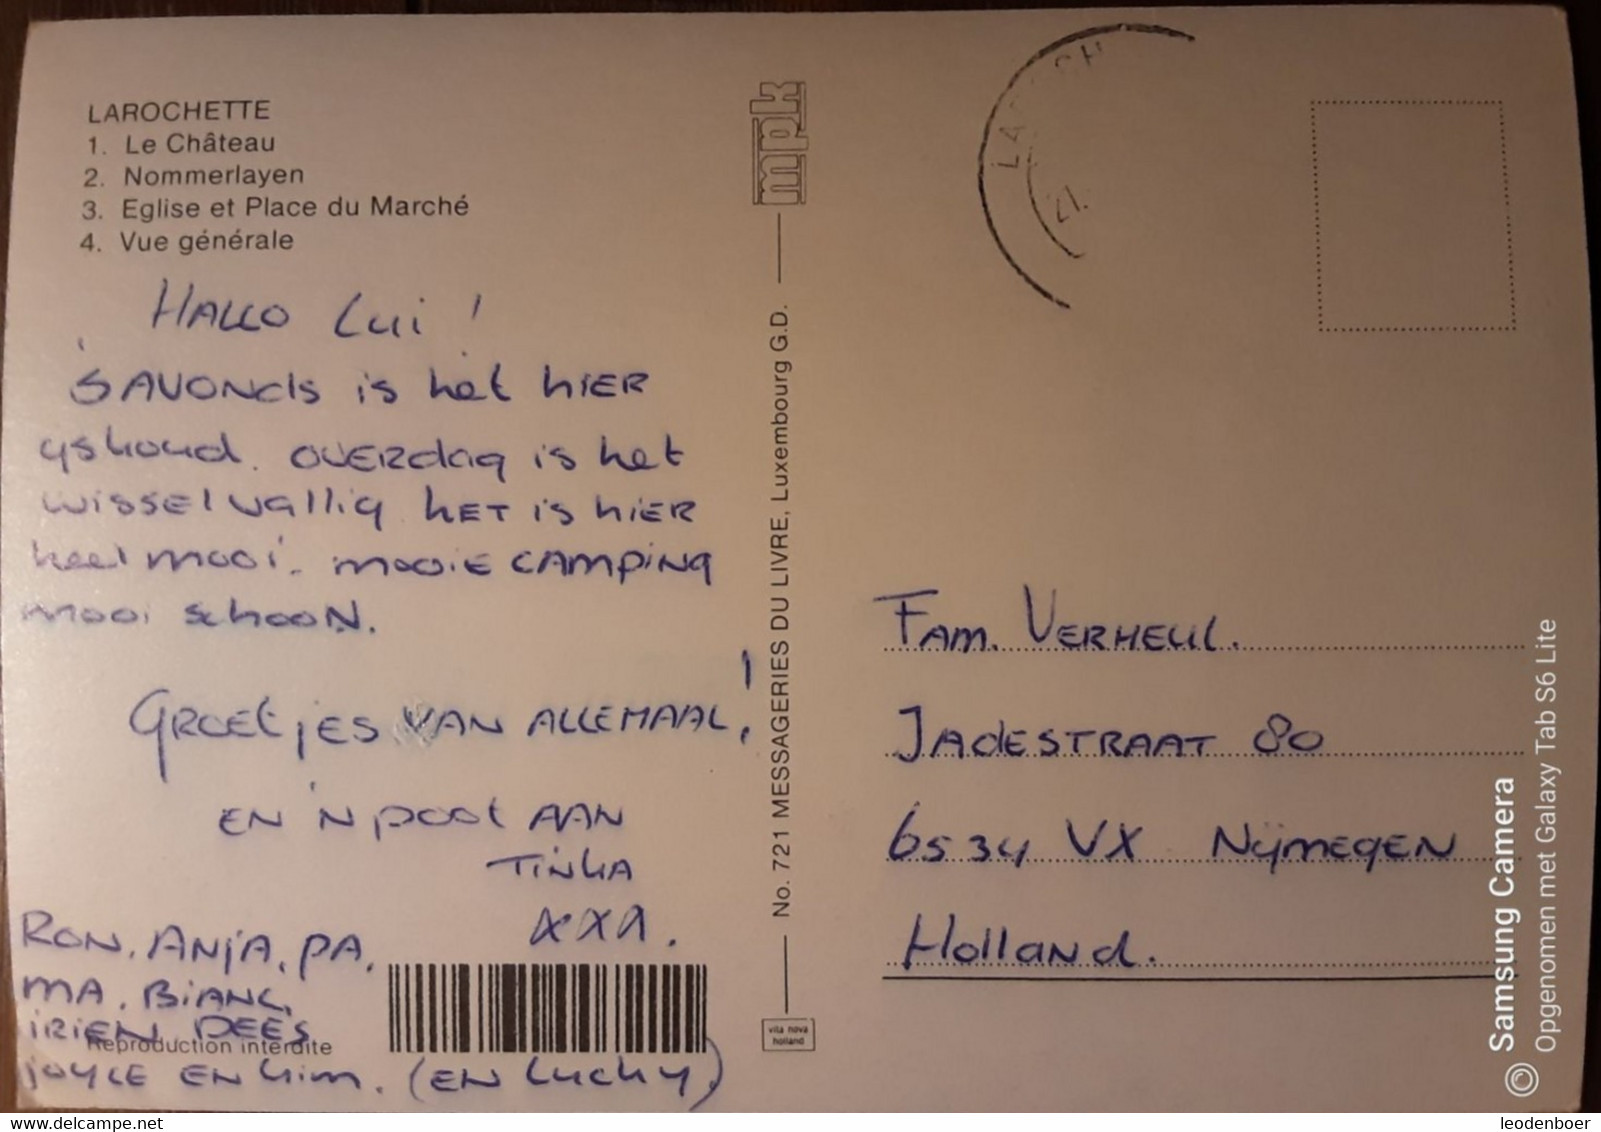 LAROCHETTE
1. Le Château
2. Nommerlayen
3. Eglise et Place du Marché
4. Vue générale
HALLO Lui!
'SAVONds is het hiER
yskoud. OVERdag is het
wisselvallig hET is hiER
heel mooi. mooiE CAMPiNg
mooi schooN.
GROEtjES VAN ALLEMAAL!
EN 'N poot AAN
TiNkA
xxx.
RON, ANjA, PA,
MA, BiANC,
iRiEN DEES
jOYCE EN kim. (EN Lucky)
Reproduction interdite
mpk
No. 721 MESSAGERIES DU LIVRE, Luxembourg G.D.
vita nova
holland
21.
FAM. VERHEUL.
JAdESTRAAT 80
6534 VX NijmEgEN
HollANd.
© Samsung Camera
Opgenomen met Galaxy Tab S6 Lite
delcampe.net
leodenboer